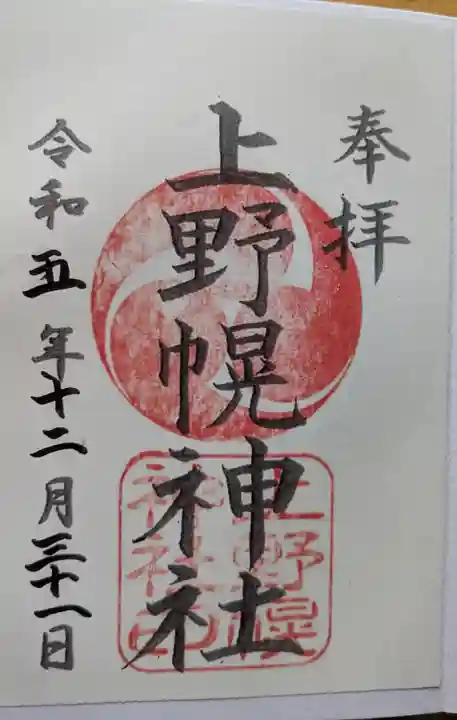 奉拝
上野幌神社
令和五年十二月三十一日
上野幌
神社印